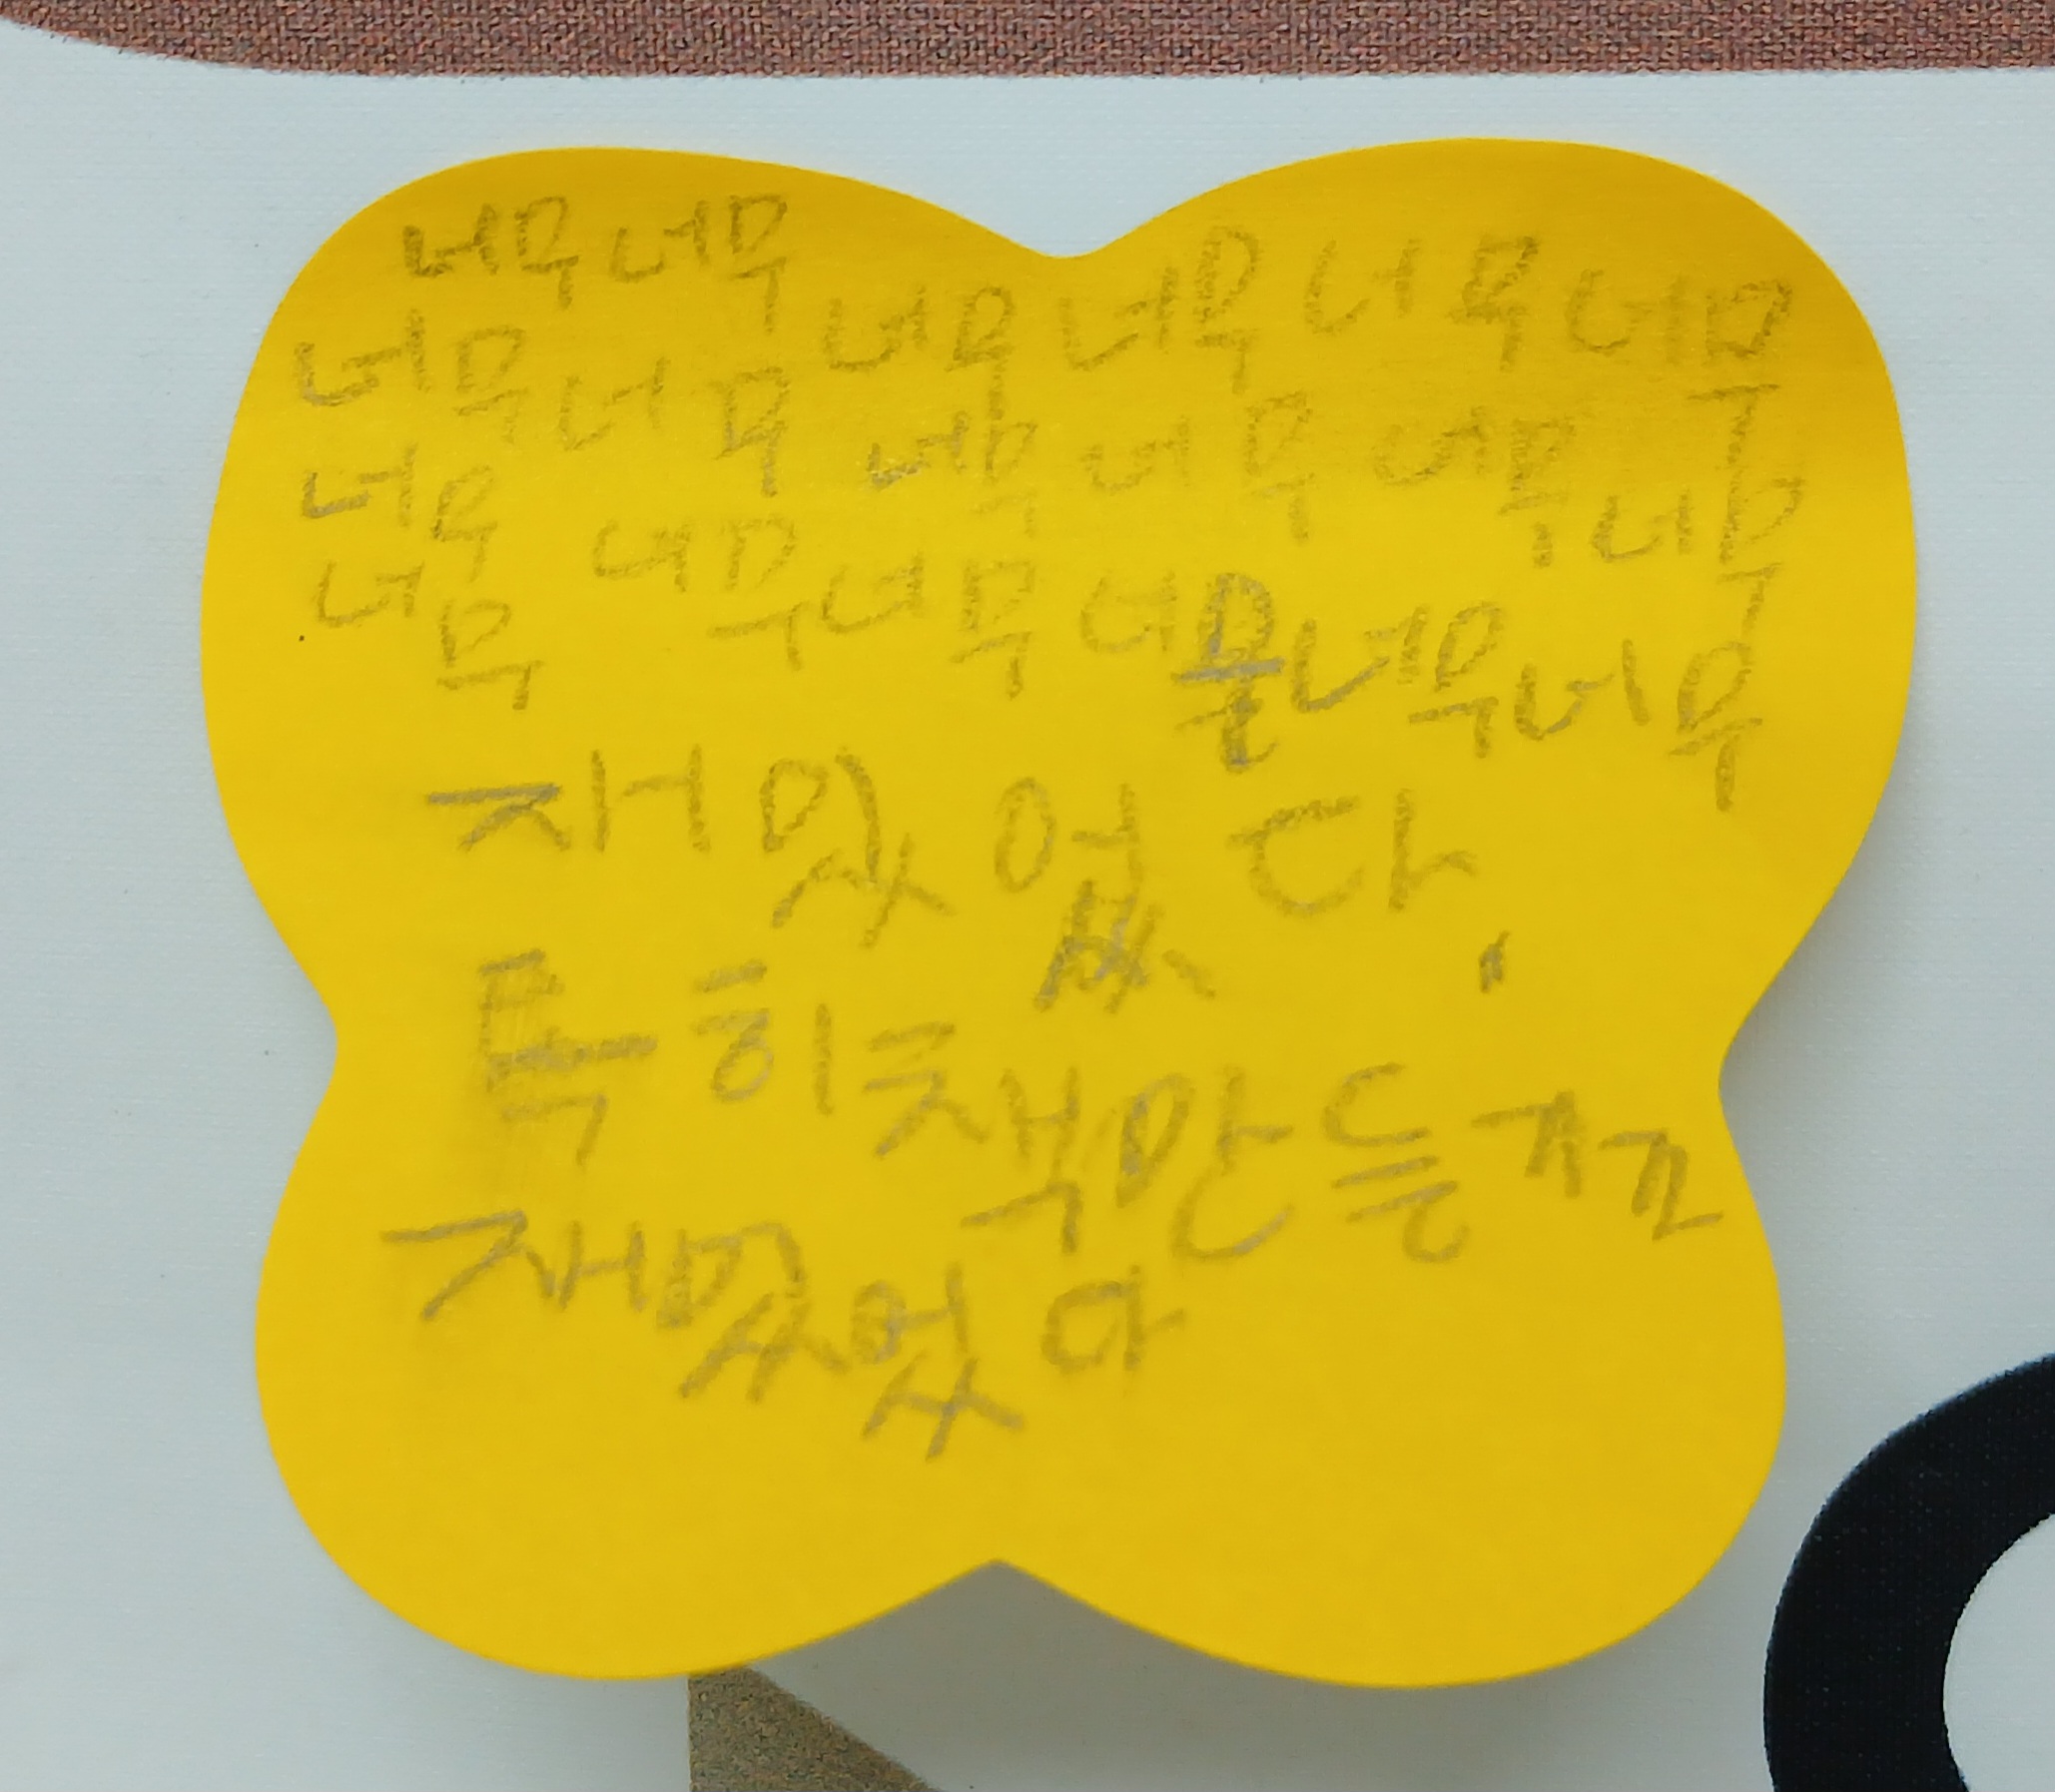 너무너무 너무 너무 너무 너무
너무 너무 너무 너무 너무 너무
너무 너무 너무 너물너무너무
재밌었다.
특히 책만들
재밌었다